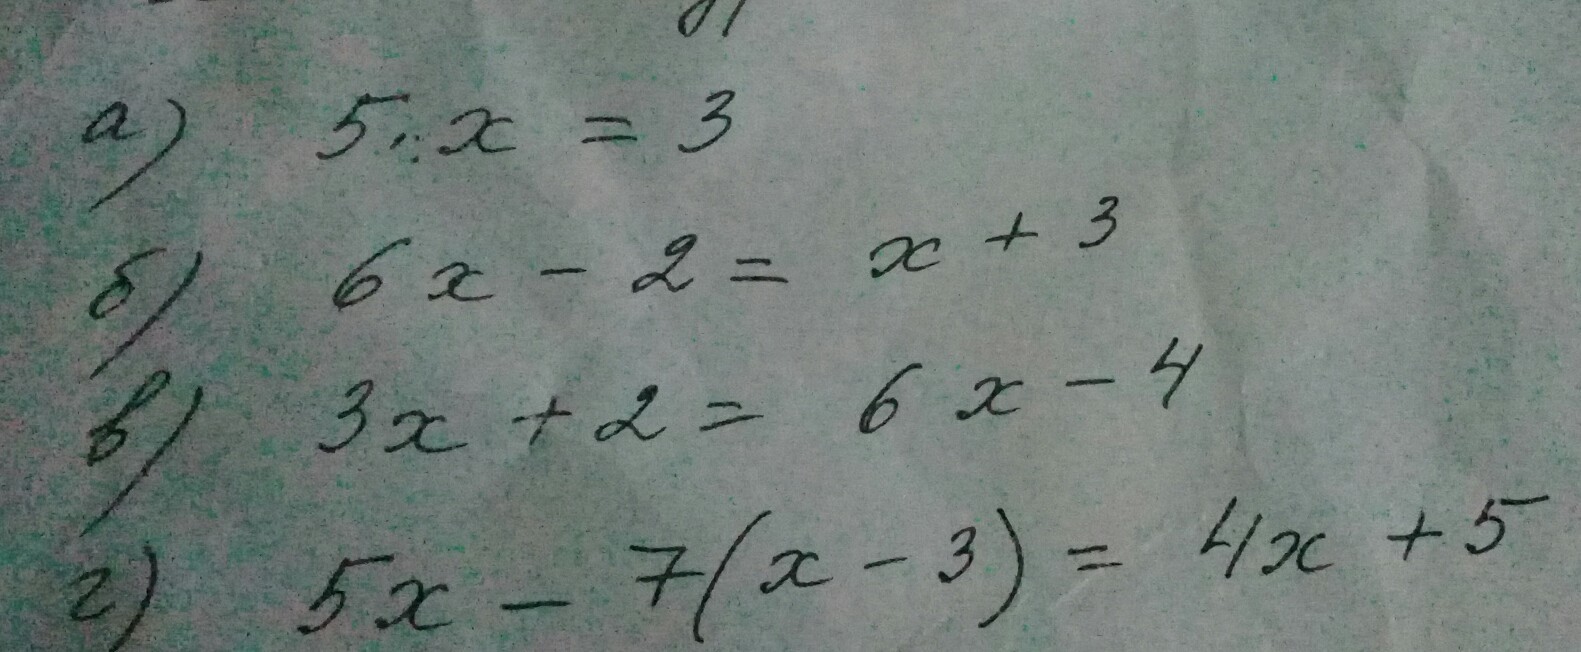 а) 5 : x = 3
б) 6x - 2 = x + 3
в) 3x + 2 = 6x - 4
г) 5x - 7(x - 3) = 4x + 5